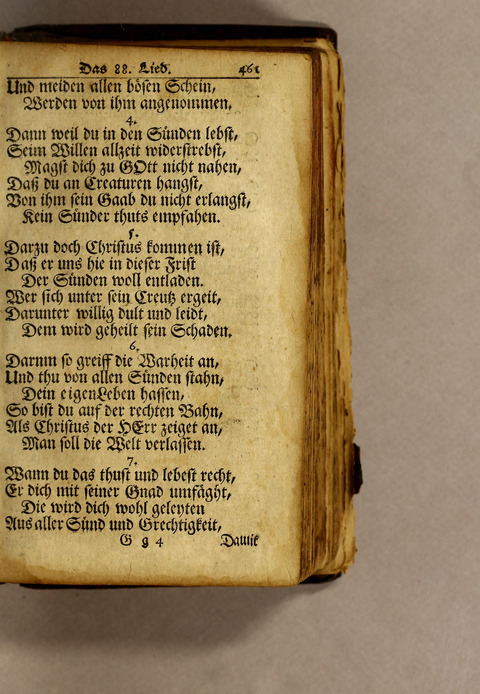 Das 88. Lied. 461
Und meiden allen bösen Schein,
Werden von ihm angenommen.
4.
Dann weil du in den Sünden lebst,
Seim Willen allzeit widerstrebst,
Magst dich zu GOtt nicht nahen,
Daß du an Creaturen hangst,
Von ihm sein Gaab du nicht erlangst,
Kein Sünder thuts empfahen.
5.
Darzu doch Christus kommen ist,
Daß er uns hie in dieser Frist
Der Sünden woll entladen.
Wer sich unter sein Creutz ergeit,
Darunter willig dult und leidt,
Dem wird geheilt sein Schaden.
6.
Darum so greiff die Warheit an,
Und thu von allen Sünden stahn,
Dein eigen Leben hassen,
So bist du auf der rechten Bahn,
Als Christus der HErr zeiget an,
Man soll die Welt verlassen.
7.
Wann du das thust und lebest recht,
Er dich mit seiner Gnad umfäght,
Die wird dich wohl geleyten
Aus aller Sünd und Grechtigkeit,
G g 4 Damit